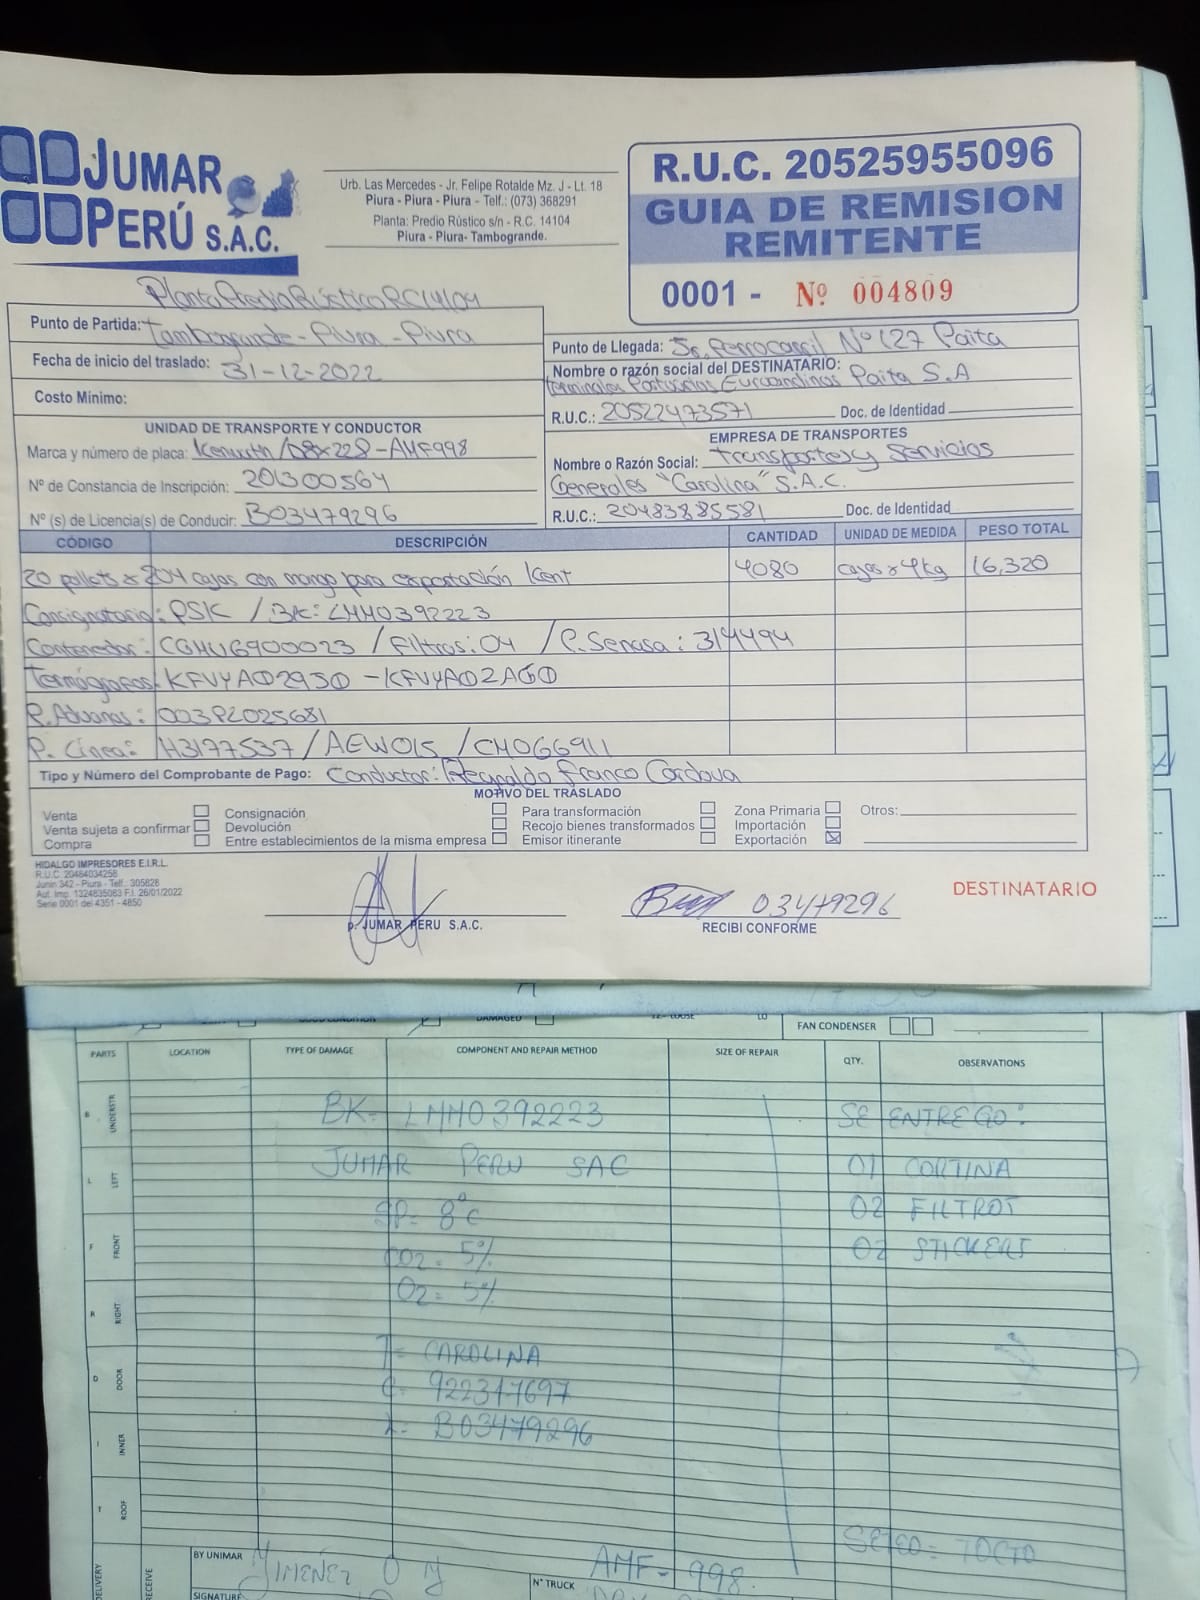 JUMAR
PERÚ S.A.C.
Urb. Las Mercedes - Jr. Felipe Rotalde Mz. J - Lt. 18
Piura - Piura - Piura - Telf.: (073) 368291
Planta: Predio Rústico s/n - R.C. 14104
Piura - Piura- Tambogrande.
R.U.C. 20525955096
GUIA DE REMISION
REMITENTE
0001 - Nº 004809
Planta Predio Rústico RC14104
Punto de Partida: Tambogrande - Piura - Piura
Fecha de inicio del traslado: 31-12-2022
Costo Mínimo:
Punto de Llegada: Jr. Ferrocarril Nº 127 Paita
Nombre o razón social del DESTINATARIO:
Terminales Portuarios Euroandinos Paita S.A
R.U.C.: 20522473571 Doc. de Identidad
UNIDAD DE TRANSPORTE Y CONDUCTOR
Marca y número de placa: Kenworth / D8X228 - AMF998
Nº de Constancia de Inscripción: 201300564
Nº (s) de Licencia(s) de Conducir: B03479296
EMPRESA DE TRANSPORTES
Nombre o Razón Social: Transportes y Servicios
Generales "Carolina" S.A.C.
R.U.C.: 20483885581 Doc. de Identidad
CÓDIGO DESCRIPCIÓN CANTIDAD UNIDAD DE MEDIDA PESO TOTAL
20 pallets x 204 cajas con mango para exportación Kent 4080 cajas x 4kg 16,320
Consignatario: PSK / BK: LMM0392223
Contenedor: CGMU6900023 / Filtros: 04 / P. Senasa: 314494
Termógrafos: KFVYA02950 - KFVYA02AG0
P. Aduanas: 003PL025681
P. Línea: H3177537 / AEW015 / CM066911
Tipo y Número del Comprobante de Pago: Conductor: Reynaldo Franco Cordova
MOTIVO DEL TRASLADO
Venta Consignación Para transformación Zona Primaria Otros:
Venta sujeta a confirmar Devolución Recojo bienes transformados Importación
Compra Entre establecimientos de la misma empresa Emisor itinerante Exportación
HIDALGO IMPRESORES E.I.R.L.
R.U.C. 20484034258
Junin 342 - Piura - Telf.: 305828
Aut. Imp. 1324835083 F.I. 26/01/2022
Serie 0001 del 4351 - 4850
p. JUMAR PERU S.A.C.
03479296
RECIBI CONFORME
DESTINATARIO
DAMAGED
FAN CONDENSER
PARTS LOCATION TYPE OF DAMAGE COMPONENT AND REPAIR METHOD SIZE OF REPAIR QTY. OBSERVATIONS
B UNDERSTR
BK= LMM0392223 SE ENTREGO:
L LEFT
JUMAR PERU SAC 01 CORTINA
SP= 8°C 02 FILTROS
F FRONT
CO2= 5% 02 STICKERS
O2= 5%
R RIGHT
T= CAROLINA
D DOOR
C= 922317697
L= B03479296
I INNER
T ROOF
SETEO= TOCTO
DELIVERY
RECEIVE
BY UNIMAR JIMENEZ O
SIGNATURE
N° TRUCK AMF-998